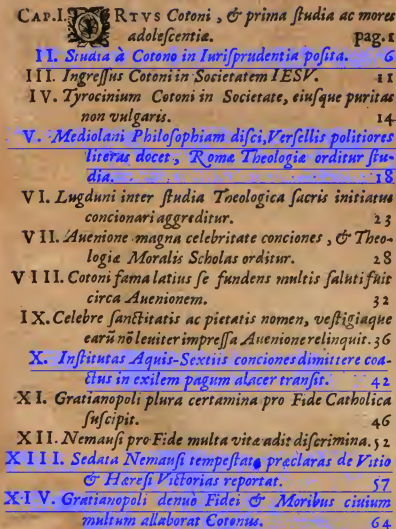 CAP.I. ORTVS Cotoni, & prima ſtudia ac mores
adoleſcentiæ. pag.1
II. Studia à Cotono in Iuriſprudentia poſita. 6
III. Ingreſſus Cotoni in Societatem IESV. 11
IV. Tyrocinium Cotoni in Societate, eiuſque puritas
non vulgaris. 14
V. Mediolani Philoſophiam diſci, Verſellis politiores
literas docet, Romæ Theologiæ orditur ſtu-
dia. 18
VI. Lugduni inter ſtudia Theologica ſacris initiatus
concionari aggreditur. 23
VII. Auenione magna celebritate conciones, & Theo-
logiæ Moralis Scholas orditur. 28
VIII. Cotoni fama latius ſe fundens multis ſaluti fuit
circa Auenionem. 32
IX. Celebre ſanctitatis ac pietatis nomen, veſtigiaque
earū nō leuiter impreſſa Auenione relinquit. 36
X. Inſtitutas Aquis-Sextiis conciones dimittere coa-
ctus in exilem pagum alacer tranſit. 42
XI. Gratianopoli plura certamina pro Fide Catholica
ſuſcipit. 46
XII. Nemauſi pro Fide multa vitæ adit diſcrimina. 52
XIII. Sedata Nemauſi tempeſtate præclaras de Vitio
& Hæreſi Victorias reportat. 57
XIV. Gratianopoli denuò Fidei & Moribus ciuium
multum allaborat Cotonus. 64